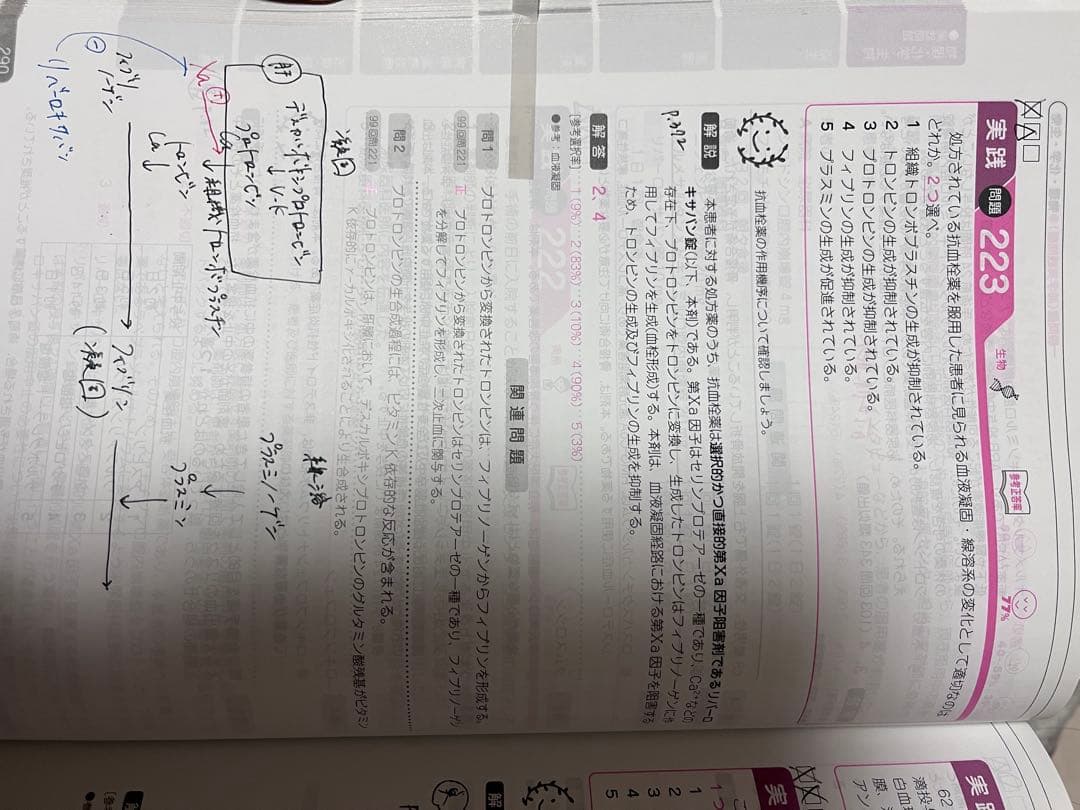 実践 問題 223 生物
参考正答率
77%
処方されている抗血栓薬を服用した患者に見られる血液凝固・線溶系の変化として適切なのは
どれか。2つ選べ。
1 組織トロンボプラスチンの生成が抑制されている。
2 トロンビンの生成が抑制されている。
3 プロトロンビンの生成が抑制されている。
4 フィブリンの生成が抑制されている。
5 プラスミンの生成が促進されている。
抗血栓薬の作用機序について確認しましょう。
解説 本患者に対する処方薬のうち、抗血栓薬は選択的かつ直接的第Xa因子阻害剤であるリバーロ
キサバン錠(以下、本剤)である。第Xa因子はセリンプロテアーゼの一種であり、Ca²⁺などの
存在下、プロトロンビンをトロンビンに変換し、生成したトロンビンはフィブリノーゲンに作
用してフィブリンを生成(血栓形成)する。本剤は、血液凝固経路における第Xa因子を阻害する
ため、トロンビンの生成及びフィブリンの生成を抑制する。
解答 2、4
[参考選択率] 1(19%) 2(83%) 3(10%) 4(90%) 5(3%)
●参考:血液凝固
関連問題
問1 プロトロンビンから変換されたトロンビンは、フィブリノーゲンからフィブリンを形成する。
99回(221) 正 プロトロンビンから変換されたトロンビンはセリンプロテアーゼの一種であり、フィブリノーゲン
を分解してフィブリンを形成し、二次止血に関与する。
問2 プロトロンビンの生合成過程には、ビタミンK依存的な反応が含まれる。
99回(221) 正 プロトロンビンは、肝臓において、デスカルボキシプロトロンビンのグルタミン酸残基がビタミン
K依存的にγ-カルボキシ化されることにより生合成される。
凝固
線溶
肝
デスカルボキシプロトロンビン
↓V.K
プロトロンビン
Xa ⊕
Ca
←組織トロンボプラスチン
トロンビン
Ca
プラスミノーゲン
プラスミン
フィブリ
ノーゲン
フィブリン
(凝固)
⊖
リバーロキサバン
290
実践
解